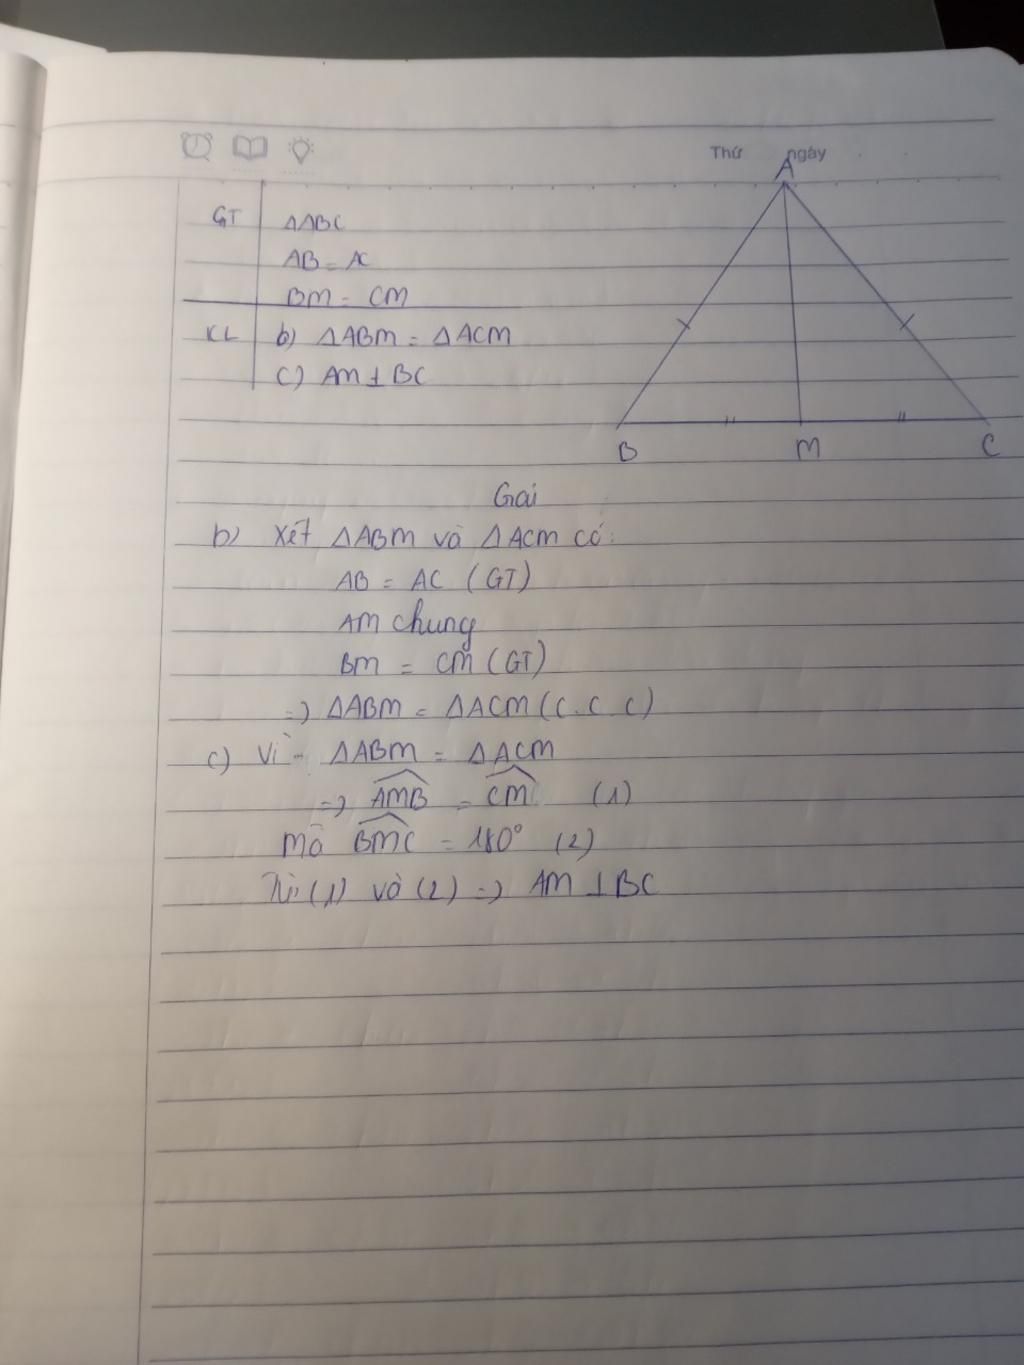 Thứ ngày
A
GT ΔABC
AB = AC
BM = CM
KL b) ΔABM = ΔACM
c) AM ⊥ BC
B M C
Giải
b) Xét ΔABM và ΔACM có:
AB = AC (GT)
AM chung
BM = CM (GT)
=) ΔABM = ΔACM (C.C.C)
c) Vì ΔABM = ΔACM
=) AMB = CM (1)
Mà BMC = 180° (2)
Từ (1) và (2) =) AM ⊥ BC